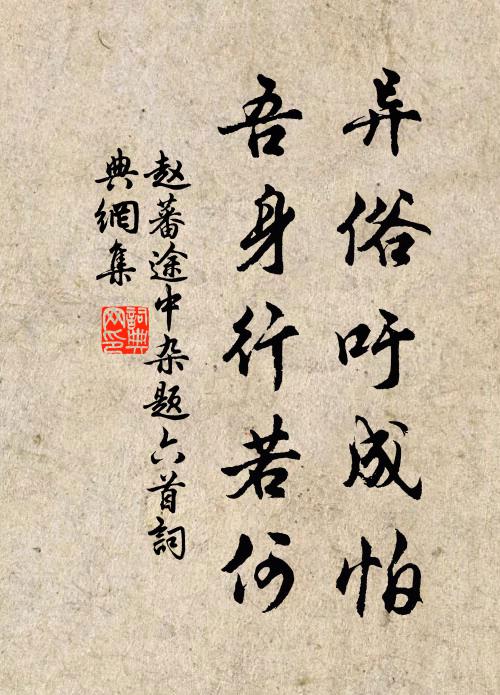 异俗吁成怕
吾身行若何
赵蕃途中杂题六首詞
典網集
詞典网印